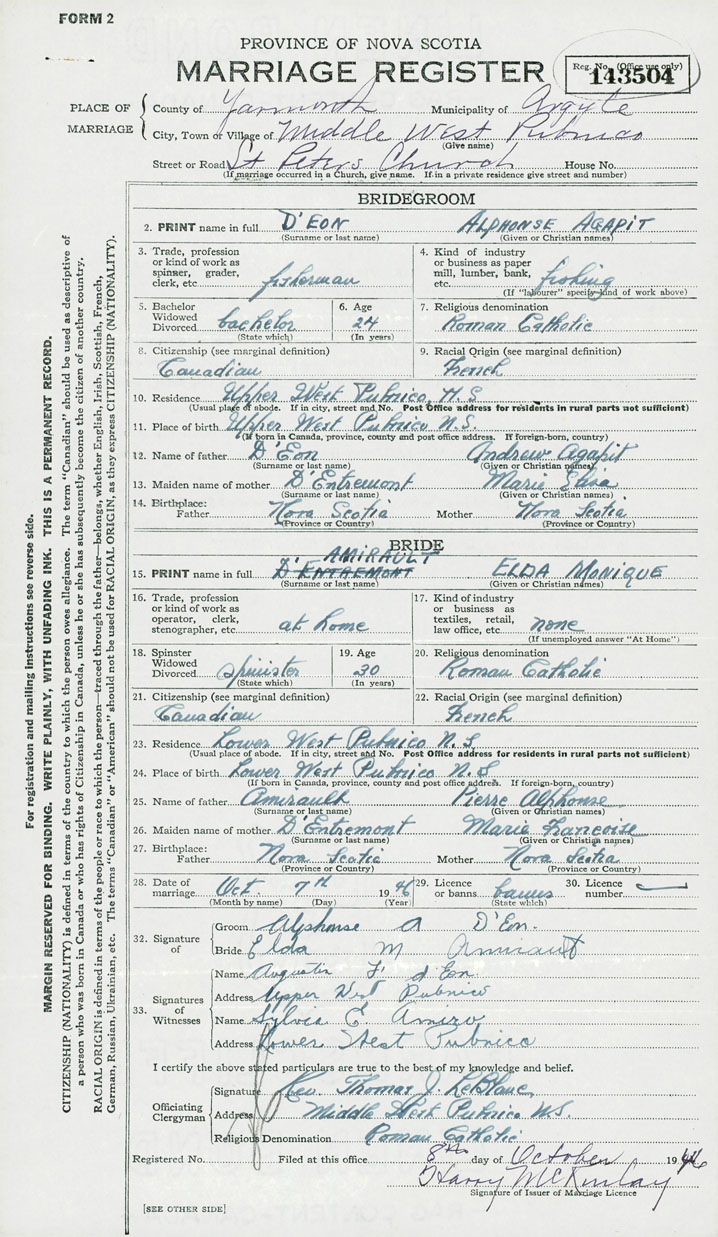 FORM 2
PROVINCE OF NOVA SCOTIA
MARRIAGE REGISTER
Reg. No. (Office use only)
143504
PLACE OF MARRIAGE
County of Yarmouth Municipality of Argyle
City, Town or Village of Middle West Pubnico
(Give name)
Street or Road St Peters Church House No.
(If marriage occurred in a Church, give name. If in a private residence give street and number)
BRIDEGROOM
2. PRINT name in full D'EON ALPHONSE AGAPIT
(Surname or last name) (Given or Christian names)
3. Trade, profession or kind of work as spinner, grader, clerk, etc. fisherman
4. Kind of industry or business as paper mill, lumber, bank, etc. fishing
(If "labourer" specify kind of work above)
5. Bachelor Widowed Divorced bachelor
(State which)
6. Age 24
(In years)
7. Religious denomination
Roman Catholic
8. Citizenship (see marginal definition)
Canadian
9. Racial Origin (see marginal definition)
French
10. Residence Upper West Pubnico, N.S.
(Usual place of abode. If in city, street and No. Post Office address for residents in rural parts not sufficient)
11. Place of birth Upper West Pubnico N.S.
(If born in Canada, province, county and post office address. If foreign-born, country)
12. Name of father D'Eon Andrew Agapit
(Surname or last name) (Given or Christian names)
13. Maiden name of mother D'Entremont Marie Elisa
(Surname or last name) (Given or Christian names)
14. Birthplace: Father Nova Scotia Mother Nova Scotia
(Province or Country) (Province or Country)
BRIDE
AMIRAULT
15. PRINT name in full D'ENTREMONT ELDA MONIQUE
(Surname or last name) (Given or Christian names)
16. Trade, profession or kind of work as operator, clerk, stenographer, etc. at home
17. Kind of industry or business as textiles, retail, law office, etc. none
(If unemployed answer "At Home")
18. Spinster Widowed Divorced spinister
(State which)
19. Age 30
(In years)
20. Religious denomination
Roman Catholic
21. Citizenship (see marginal definition)
Canadian
22. Racial Origin (see marginal definition)
French
23. Residence Lower West Pubnico N.S.
(Usual place of abode. If in city, street and No. Post Office address for residents in rural parts not sufficient)
24. Place of birth Lower West Pubnico N.S
(If born in Canada, province, county and post office address. If foreign-born, country)
25. Name of father Amirault Pierre Alphonse
(Surname or last name) (Given or Christian names)
26. Maiden name of mother D'Entremont Marie Francoise
(Surname or last name) (Given or Christian names)
27. Birthplace: Father Nova Scotia Mother Nova Scotia
(Province or Country) (Province or Country)
28. Date of marriage Oct. 7th 1946
(Month by name) (Day) (Year)
29. Licence or banns banns
(State which)
30. Licence number
32. Signature of
Groom Alphonse A D'Eon.
Bride Elda M Amirault
33. Signatures of Witnesses
Name Augustin F. d'Eon
Address Upper West Pubnico
Name Sylvia E. Amiro
Address Lower West Pubnico
I certify the above stated particulars are true to the best of my knowledge and belief.
Officiating Clergyman
Signature Rev. Thomas J. LeBlanc,
Address Middle West Pubnico N.S.
Religious Denomination Roman Catholic
Registered No. Filed at this office 8th day of October 1946
Harry McKinlay
Signature of Issuer of Marriage Licence
[SEE OTHER SIDE]
For registration and mailing instructions see reverse side.
MARGIN RESERVED FOR BINDING. WRITE PLAINLY, WITH UNFADING INK. THIS IS A PERMANENT RECORD.
CITIZENSHIP (NATIONALITY) is defined in terms of the country to which the person owes allegiance. The term "Canadian" should be used as descriptive of
a person who was born in Canada or who has rights of Citizenship in Canada, unless he or she has subsequently become the citizen of another country.
RACIAL ORIGIN is defined in terms of the people or race to which the person—traced through the father—belongs, whether English, Irish, Scottish, French,
German, Russian, Ukrainian, etc. The terms "Canadian" or "American" should not be used for RACIAL ORIGIN, as they express CITIZENSHIP (NATIONALITY).